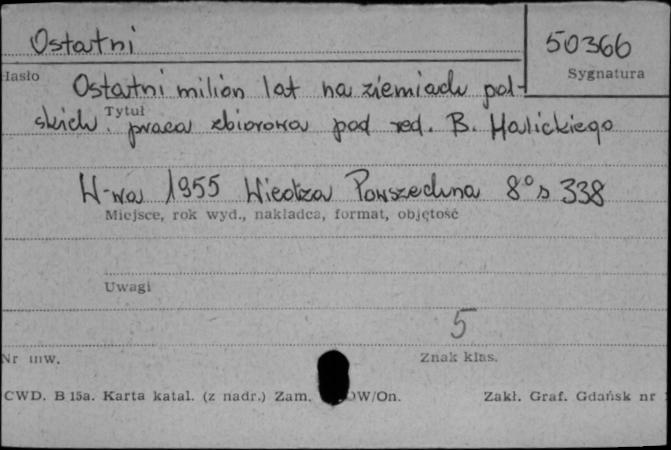 Ostatni
50366
Hasło
Sygnatura
Ostatni milion lat na ziemiach pol-
Tytuł
skich. praca zbiorowa pod red. B. Halickiego
W-wa 1955 Wiedza Powszechna 8° s 338
Miejsce, rok wyd., nakładca, format, objętość
Uwagi
5
Nr inw.
Znak klas.
CWD. B 15a. Karta katal. (z nadr.) Zam. OW/On. Zakł. Graf. Gdańsk nr